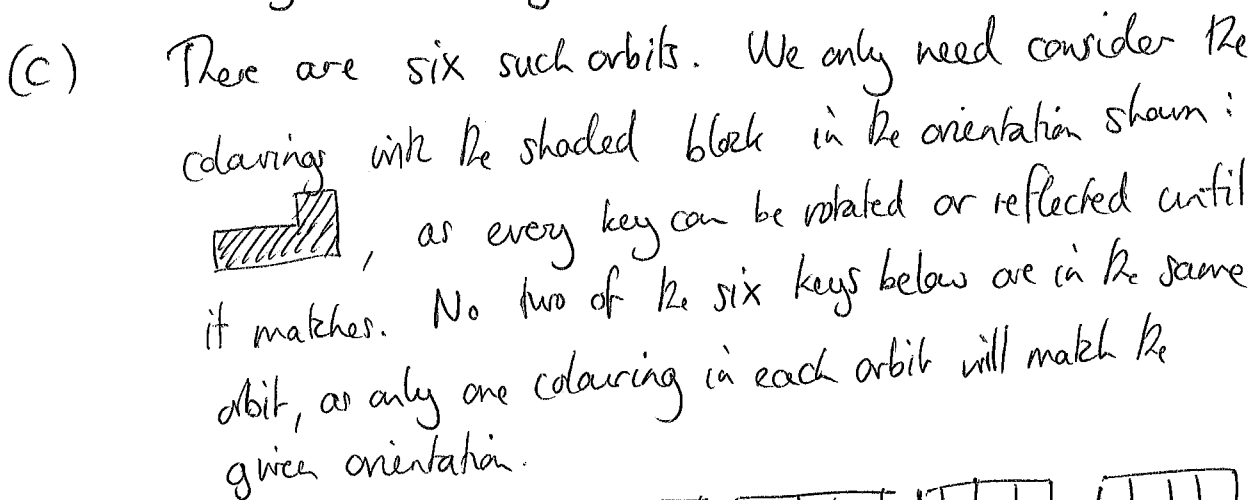 (C) There are six such orbits. We only need consider the
colourings with the shaded block in the orientation shown:
, as every key can be rotated or reflected until
it matches. No two of the six keys below are in the same
orbit, as only one colouring in each orbit will match the
given orientation.